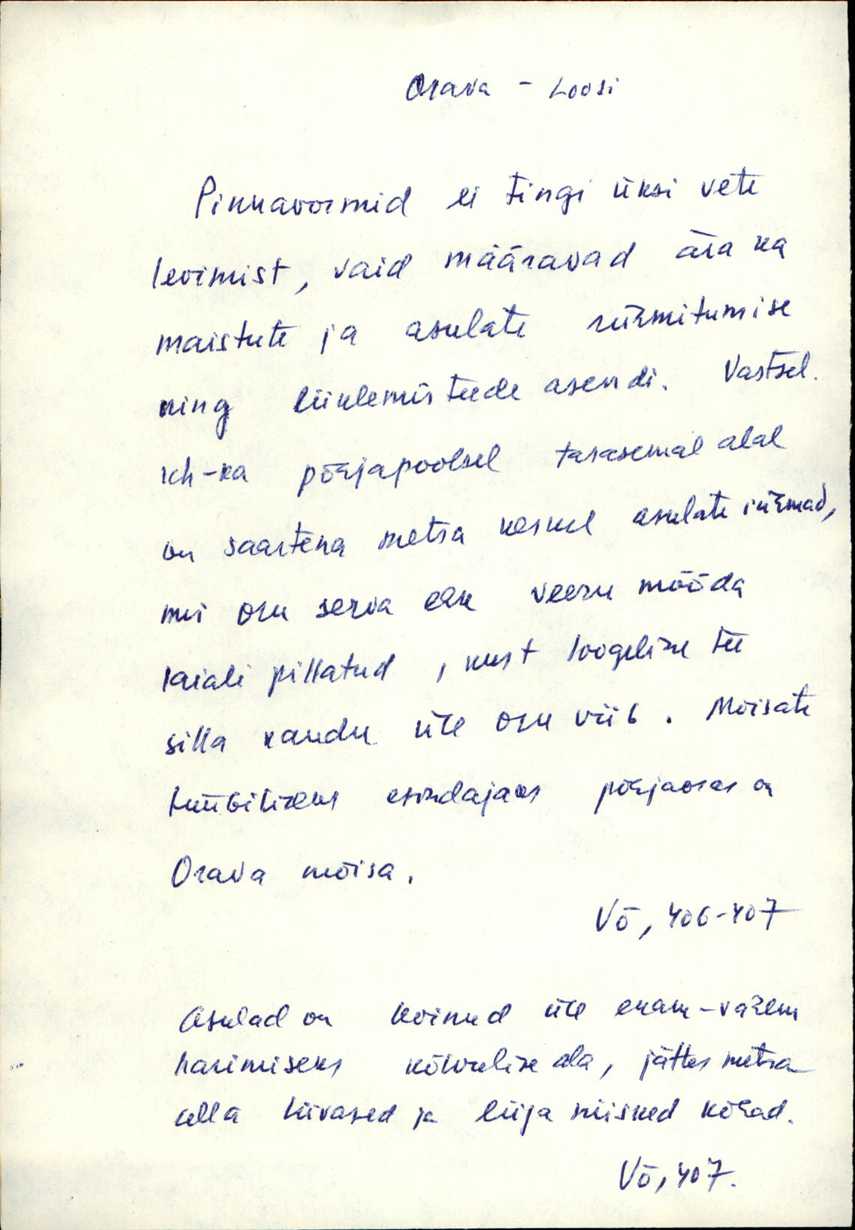 Orava - Loosi
Pinnavormid ei tingi üksi vete
levimist, vaid määravad ära ka
maistute ja asulate rühmitumise
ning liiklemisteede asendi. Vastsel.
kh-ka põhjapoolsel tasasemal alal
on saartena metsa keskel asulate rühmad,
mis oru serva ehk veeru mööda
laiali pillatud, kust loogeline tee
silla kaudu üle oru viib. Mõisate
tüübilizeks esindajaks põhjaosas on
Orava mõisa.
Võ, 406-407
Asulad on levinud üle enam-vähem
harimiseks kõlvulise ala, jättes metsa
alla liivased ja liiga niisked kohad.
Võ, 407.